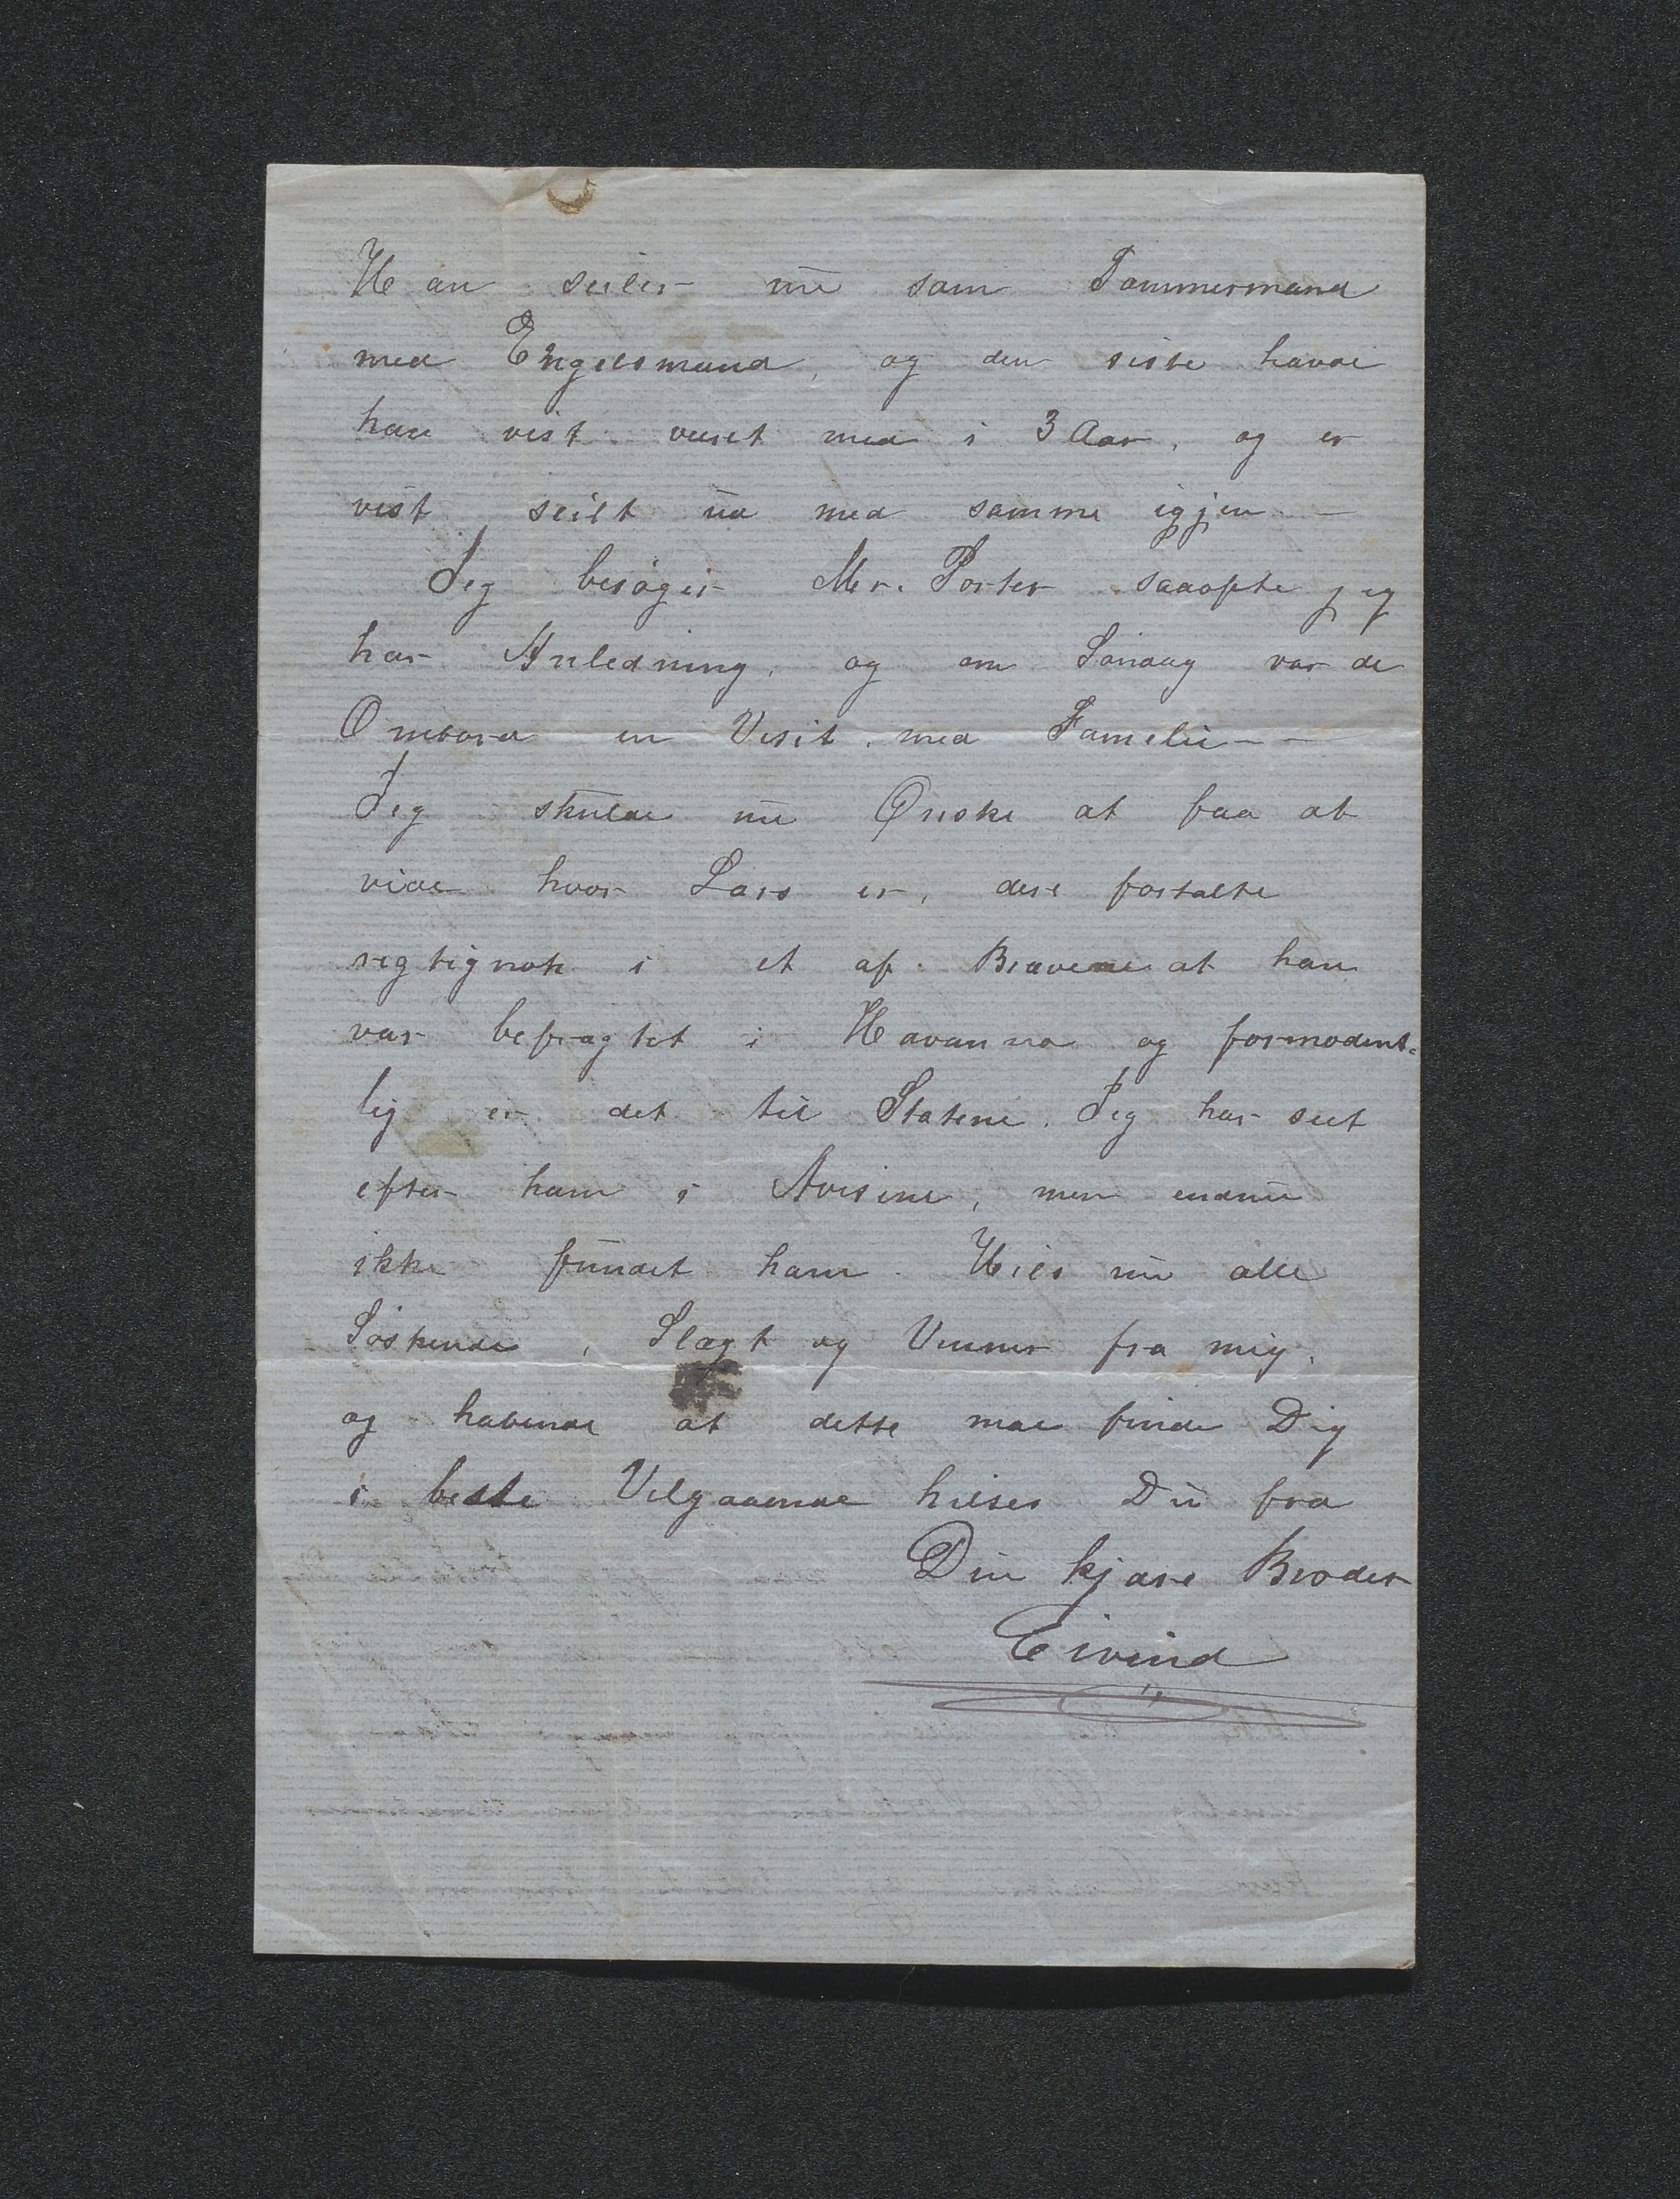 Han seiler nu som Tømmermand
med Engelsmand, og den siste havde
han vist været med i 3 Aar, og er
vist seilt ud med samme igjen –
Jeg besøger Mr. Porter saaofte jeg
har Anledning, og om Søndag var de
Ombord en Visit med Familie –
Jeg skulde nu Ønske at faa at
vide hvor Lars er, dere fortalte
rigtignok i et af Brevene at han
var befragtet i Havanna og formodent=
lig er det til Statene. Jeg har seet
efter ham i Avisene, men endnu
ikke fundet ham. Hils nu alle
Søskende, Slægt og Venner fra mig,
og habende at dette maa finde Dig
i beste Velgaaende hilses Du fra
Din kjære Broder
Eivind